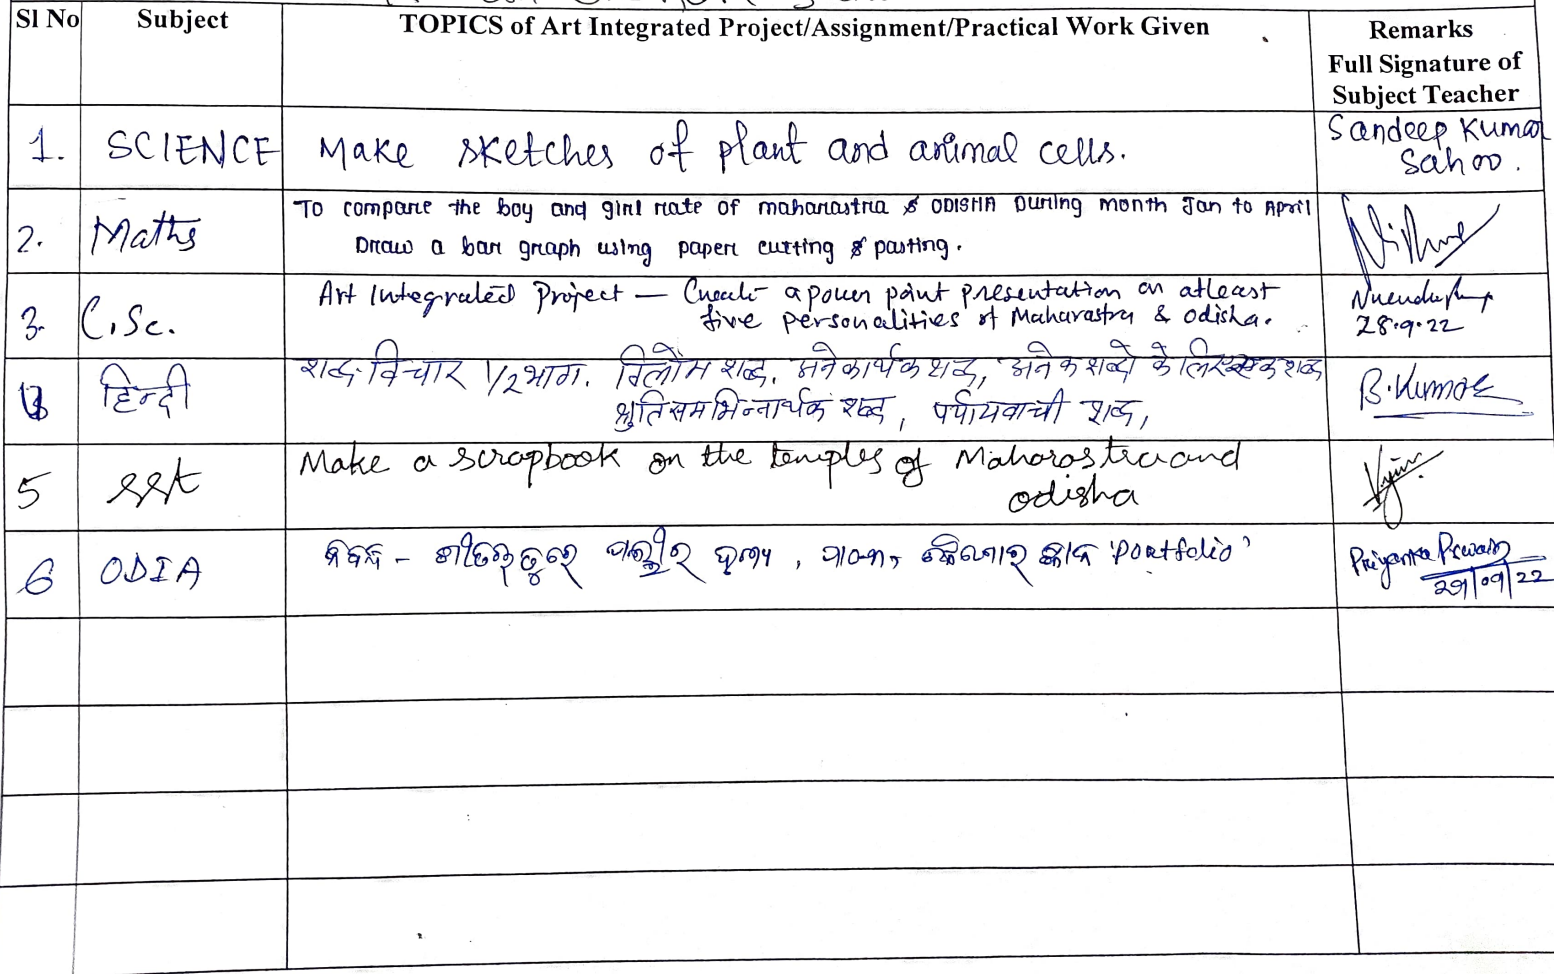 Sl No Subject TOPICS of Art Integrated Project/Assignment/Practical Work Given Remarks
Full Signature of
Subject Teacher
1. SCIENCE Make sketches of plant and animal cells. Sandeep Kumar
Sahoo.
2. Maths To compare the boy and girl rate of maharastra & ODISHA During month Jan to April
Draw a bar graph using paper cutting & pasting.
3. C.Sc. Art Integrated Project — Create a power point presentation on atleast
five personalities of Maharastra & Odisha.
28.9.22
हिन्दी शब्द-विचार 1/2 भाग. विलोम शब्द, अनेकार्थक शब्द, अनेक शब्दों के लिए एक शब्द
श्रुतिसमभिन्नार्थक शब्द, पर्यायवाची शब्द, B.Kumar
5 SST Make a scrapbook on the temples of Maharastra and
odisha
6 ODIA ନିବନ୍ଧ - ଶୀତଋତୁରେ ପଲ୍ଲୀର ଦୃଶ୍ୟ, 'Portfolio' Priyanka
29/09/22